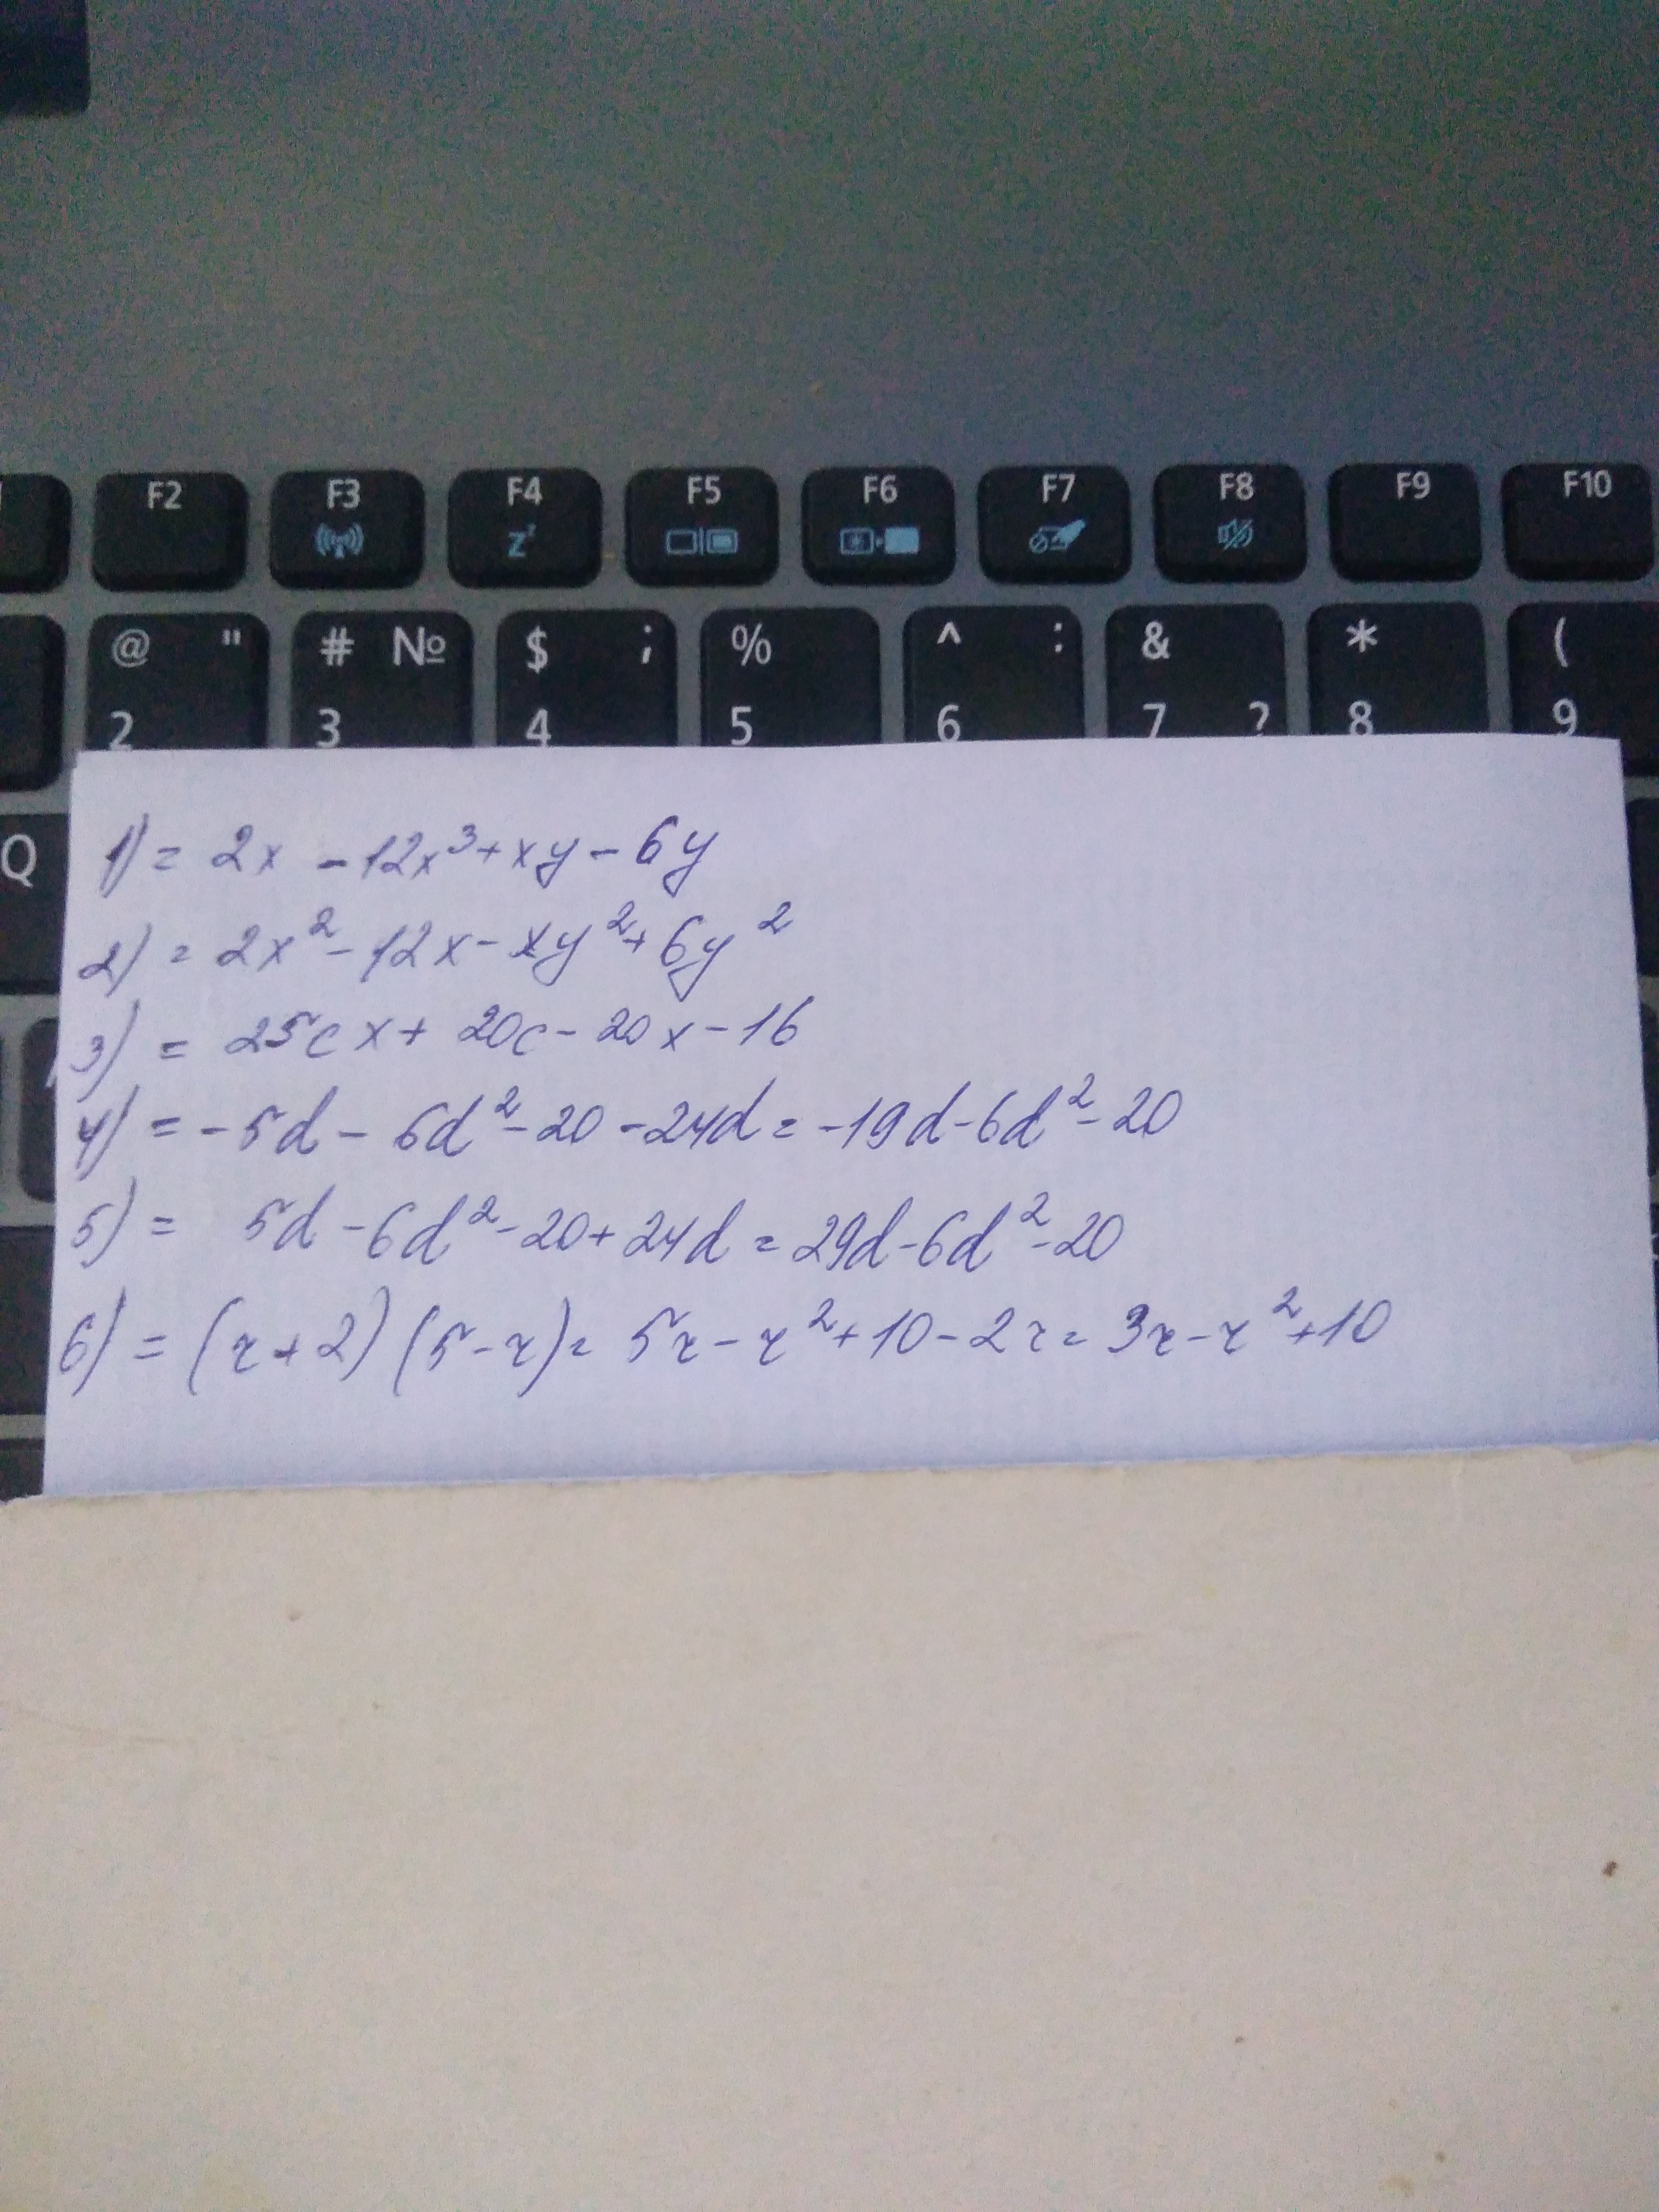 F2 F3 F4 F5 F6 F7 F8 F9 F10
@ " # № $ ; % ^ : & * (
2 3 4 5 6 7 ? 8 9
Q
1) = 2x - 12x³ + xy - 6y
2) = 2x² - 12x - xy² + 6y²
3) = 25cx + 20c - 20x - 16
4) = -5d - 6d² - 20 - 24d = -19d - 6d² - 20
5) = 5d - 6d² - 20 + 24d = 29d - 6d² - 20
6) = (r + 2)(5 - r) = 5r - r² + 10 - 2r = 3r - r² + 10